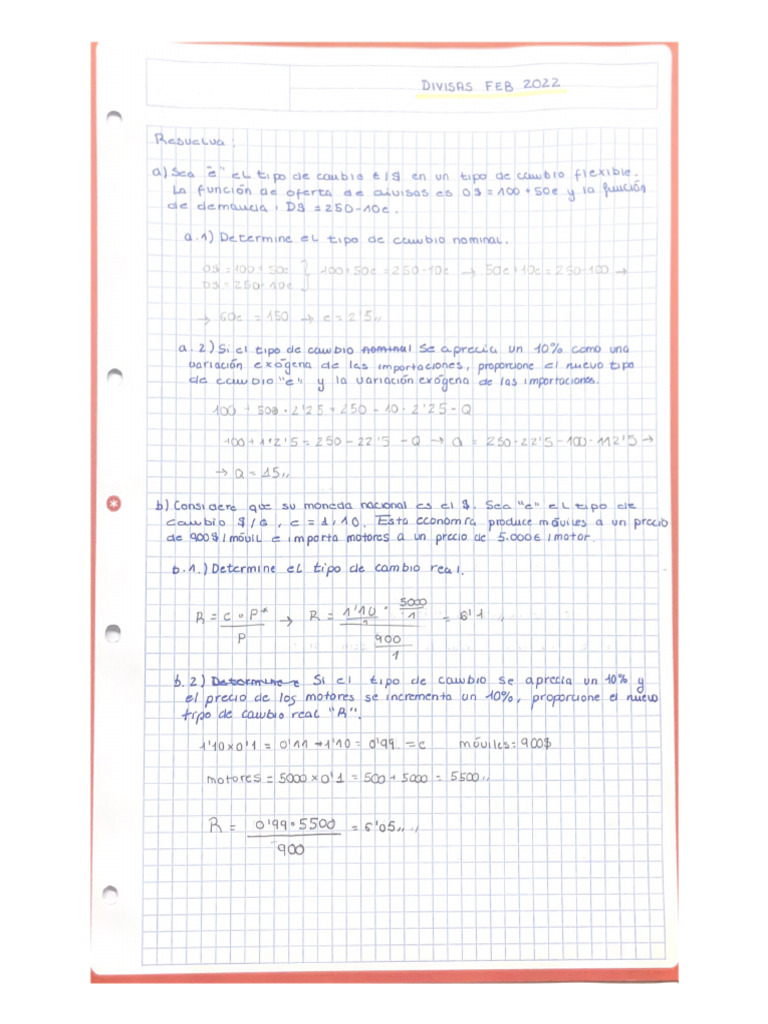 DIVISAS FEB 2022
Resuelva:
a) Sea "e" el tipo de cambio €/$ en un tipo de cambio flexible.
La función de oferta de divisas es O$ = 100 + 50e y la función
de demanda, D$ = 250-10e.
a.1) Determine el tipo de cambio nominal.
O$ = 100 + 50e } 100+50e = 250-10e → 50e+10e = 250-100 →
D$ = 250-10e
→ 60e = 150 → e = 2'5,,
a.2) Si el tipo de cambio nominal se aprecia un 10% como una
variación exógena de las importaciones, proporcione el nuevo tipo
de cambio "e" y la variación exógena de las importaciones.
100 + 50 · 2'25 = 250 - 10 · 2'25 - Q
100 + 112'5 = 250 - 22'5 - Q → Q = 250-22'5-100-112'5 →
→ Q = 15,,
b) Considere que su moneda nacional es el $. Sea "e" el tipo de
cambio $/€, e = 1,10. Esta economía produce móviles a un precio
de 900$/móvil e importa motores a un precio de 5.000€/motor.
b.1.) Determine el tipo de cambio real.
R = e · P* / P → R = 1'10 · 5000/1 / 900/1 = 6'1,,
b.2) Determine e Si el tipo de cambio se aprecia un 10% y
el precio de los motores se incrementa un 10%, proporcione el nuevo
tipo de cambio real "R".
1'10 x 0'1 = 0'11 → 1'10 = 0'99 = e móviles: 900$
motores = 5000 x 0'1 = 500 + 5000 = 5500,,
R = 0'99 · 5500 / 900 = 6'05,,